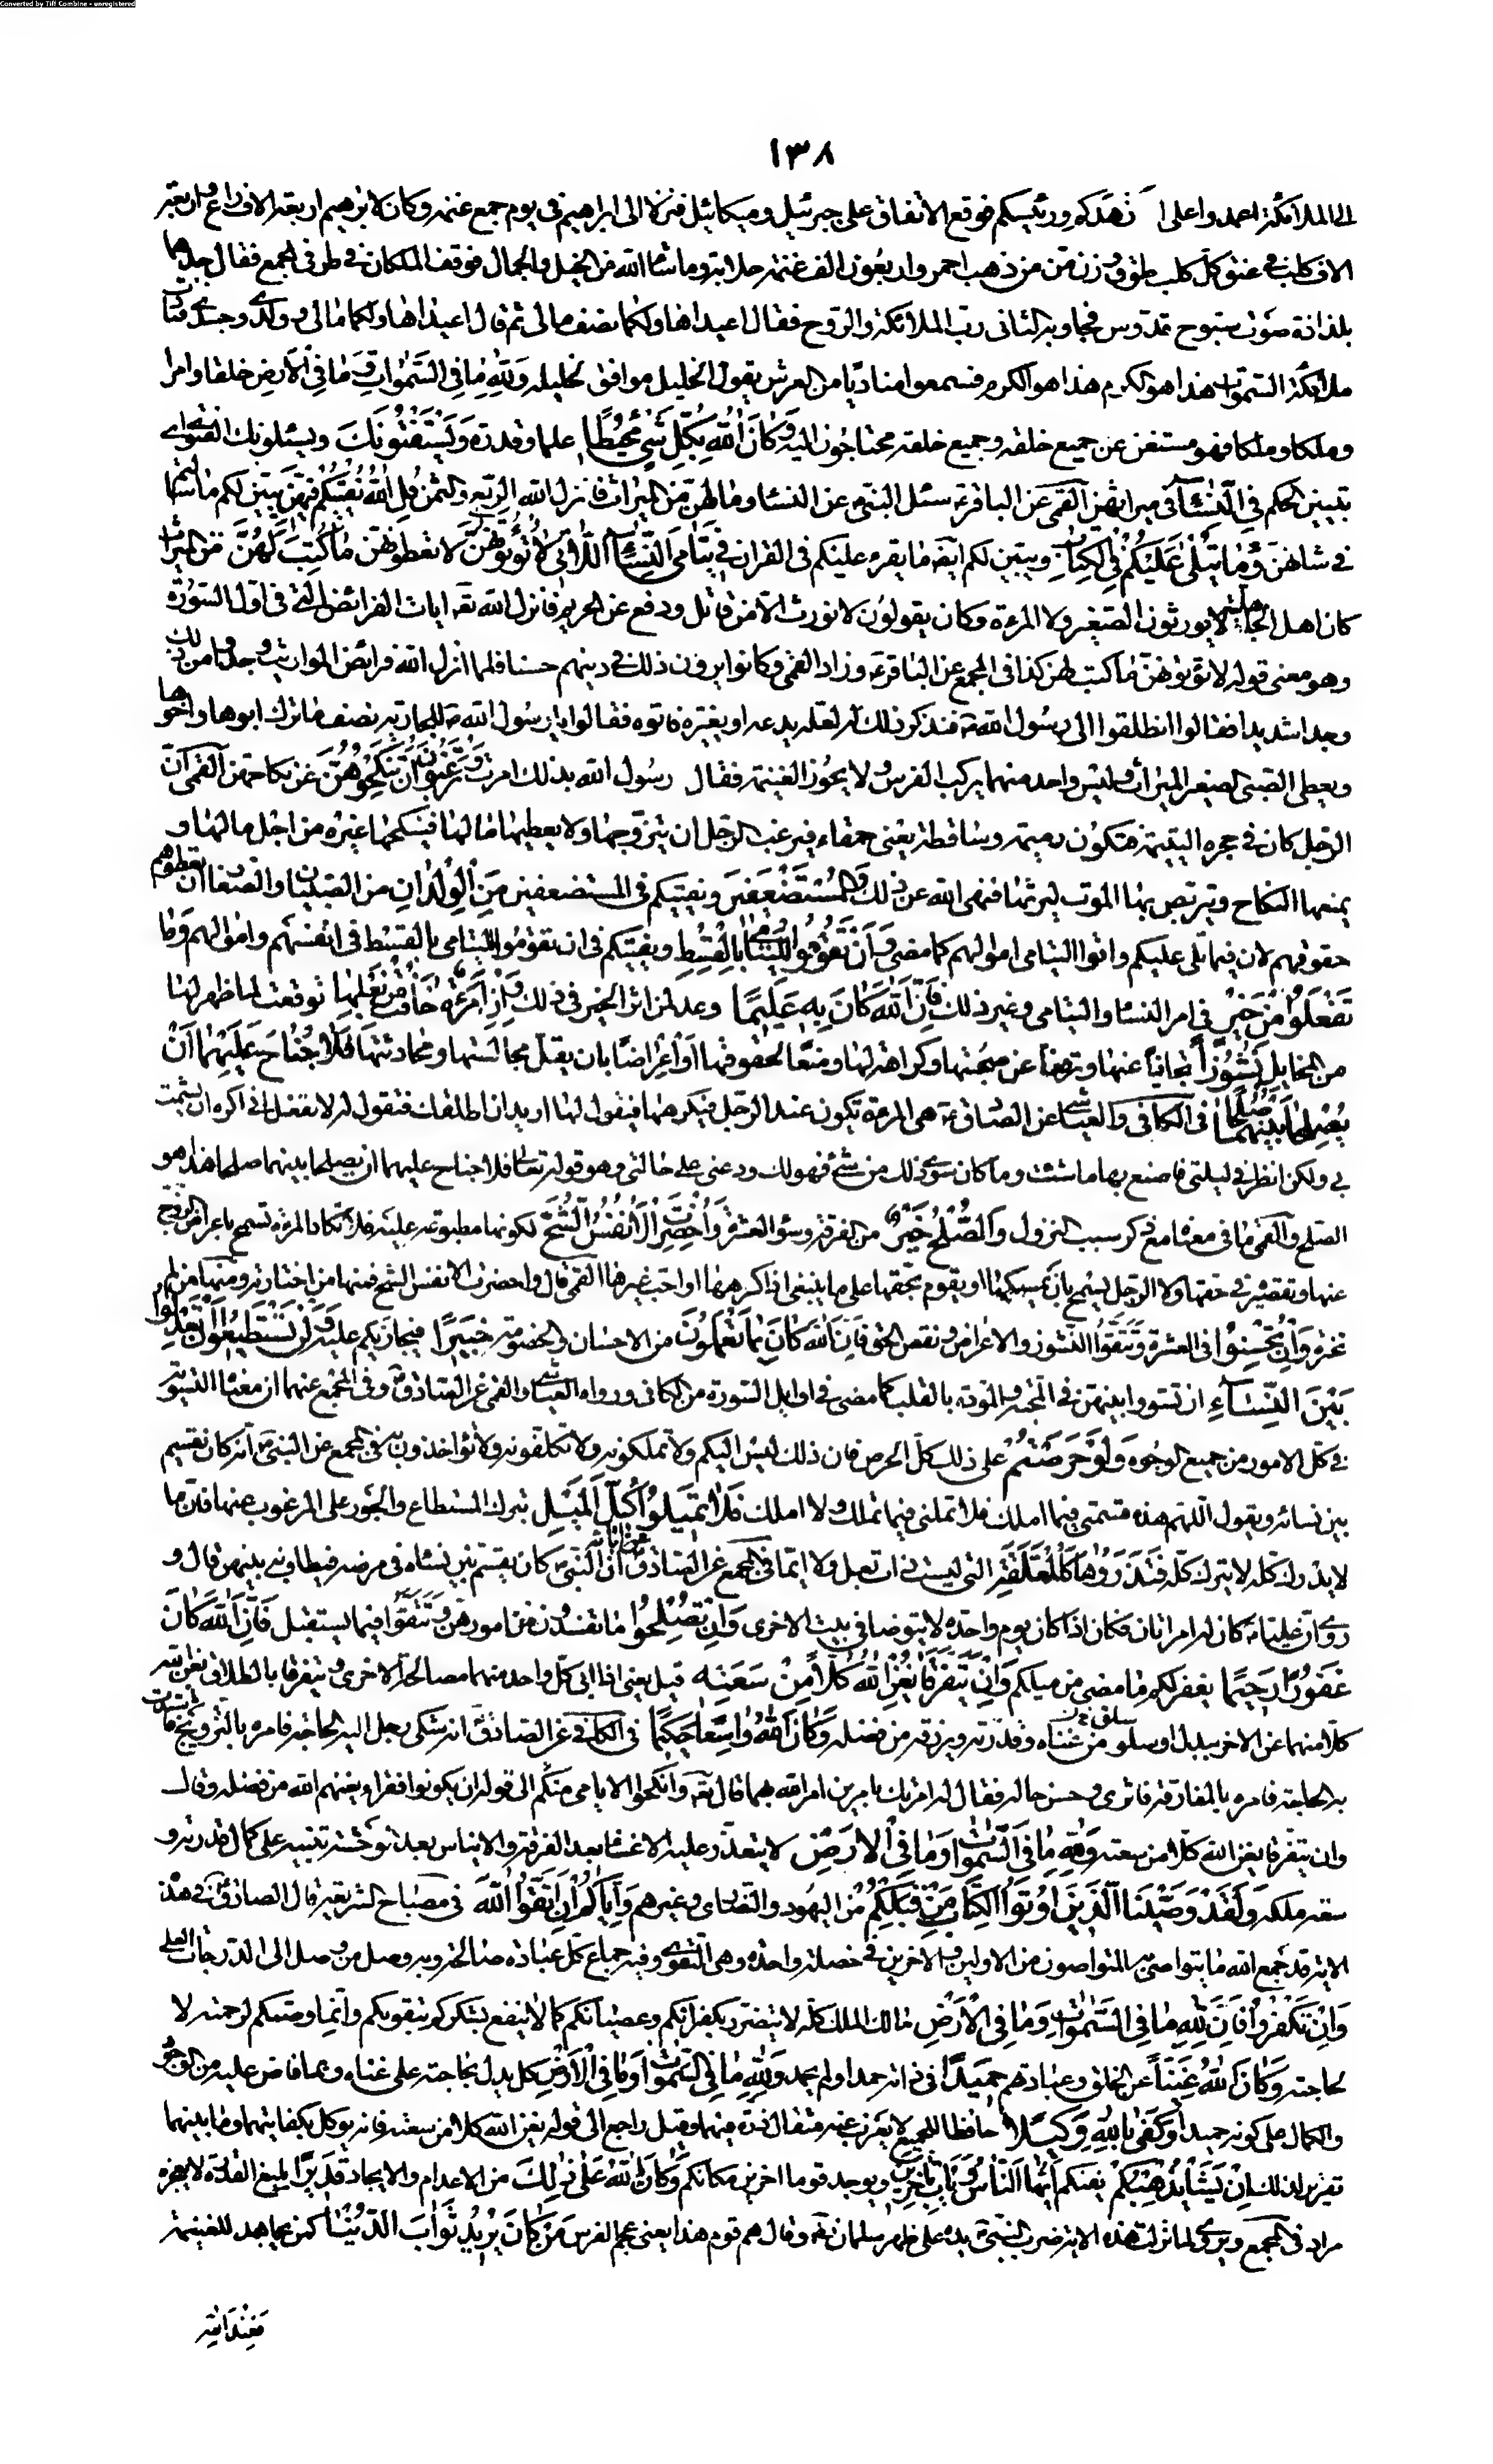 Converted by Tiff Combine - unregistered
١٣٨
الى الملائكة اعمدوا على ازهدكم ورئيسكم فوقع الاتفاق على جبرئيل وميكائيل فنزلا الى ابراهيم في يوم جمع غنمه وكان لابرهيم اربعة الاف راع واربعة
الاف كلب في عنق كل كلب طوق وزن من من ذهب احمر واربعون الف غنمة حلابة وما شاء الله من الخيل والجمال فوقف الملكان في طرفي الجمع فقال احدهما
بلذاذة صوت سبوح قدوس فجاوبه الثاني رب الملائكة والروح فقال اعيداها ولكما نصف مالي ثم قال اعيداها ولكما مالي وولدي وجسدي فنادت
ملائكة السموات هذا هو الكرم هذا هو الكرم فسمعوا مناديا من العرش يقول الخليل موافق لخليله وَلِلَّهِ مٰا فِي السَّمٰوٰاتِ وَمٰا فِي الْأَرْضِ خلقا وامرا
وملكا وملكا فهو مستغن عن جميع خلقه وجميع خلقه محتاجون اليه وَكٰانَ اللهُ بِكُلِّ شَيْءٍ مُحِيطًا علما وقدرة وَيَسْتَفْتُونَكَ ويسئلونك الفتوى اي
تبيين الحكم فِي النِّسٰاءِ في ميراثهن القمي عن الباقر ع سئل النبي ص عن النساء وما لهن من الميراث فانزل الله الربع والثمن قُلِ اللهُ يُفْتِيكُمْ فِيهِنَّ يبين لكم ما سئلتم
في شانهن وَمٰا يُتْلىٰ عَلَيْكُمْ فِي الْكِتٰابِ ويبين لكم ايضا ما يقرء عليكم في القران فِي يَتٰامَى النِّسٰاءِ اللّٰاتِي لٰا تُؤْتُونَهُنَّ لا تعطونهن مٰا كُتِبَ لَهُنَّ من الميراث
كان اهل الجاهلية لا يورثون الصغير ولا المرءة وكان يقولون لا نورث الا من قاتل ودفع عن الحريم فانزل الله تعه ايات الفرائض التي في اول السورة
وهو معنى قوله لا تؤتونهن ما كتب لهن كذا في المجمع عن الباقر ع وزاد القمي وكانوا يرون ذلك في دينهم حسنا فلما انزل الله فرائض المواريث وجدوا من ذلك
وجدا شديدا فقالوا انطلقوا الى رسول الله ص فنذكر ذلك له لعله يدعه او يغيره فاتوه فقالوا يا رسول الله ص للجارية نصف ما ترك ابوها واخوها
ويعطى الصبي الصغير الميراث وليس واحد منهما يركب الفرس ولا يحوز الغنيمة فقال رسول الله بذلك امرت وَتَرْغَبُونَ أَنْ تَنْكِحُوهُنَّ عن نكاحهن القمي ان
الرجل كان في حجره اليتيمة فتكون دميمة وساقطة يعني حمقاء فيرغب الرجل ان يتزوجها ولا يعطيها مالها فينكحها غيره من اجل مالها و
يمنعها النكاح ويتربص بها الموت ليرثها فنهى الله عن ذلك وَالْمُسْتَضْعَفِينَ ويفتيكم في المستضعفين مِنَ الْوِلْدٰانِ من الصبيان والصغار ان تعطوهم
حقوقهم لان فيما تلى عليكم واتوا اليتامى اموالهم كما مضى وَأَنْ تَقُومُوا لِلْيَتٰامىٰ بِالْقِسْطِ ويفتيكم في ان تقوموا لليتامى بالقسط في انفسهم واموالهم وَمٰا
تَفْعَلُوا مِنْ خَيْرٍ في امر النساء واليتامى وغير ذلك فَإِنَّ اللهَ كٰانَ بِهِ عَلِيمًا وعد لمن اثر الخير في ذلك وَإِنِ امْرَأَةٌ خٰافَتْ مِنْ بَعْلِهٰا توقعت لما ظهر لها
من المخايل نُشُوزًا تجافيا عنها وترفعا عن صحبتها وكراهة لها ومنعا لحقوقها أَوْ إِعْرٰاضًا بان يقل مجالستها ومحادثتها فَلٰا جُنٰاحَ عَلَيْهِمٰا أَنْ
يُصْلِحٰا بَيْنَهُمٰا صُلْحًا في الكافي والعياشي عن الصادق ع هي المرءة تكون عند الرجل فيكرهها فيقول لها اريد ان اطلقك فتقول له لا تفعل اني اكره ان تشمت
بي ولكن انظر في ليلتي فاصنع بها ما شئت وما كان سوى ذلك من شئ فهو لك ودعني على حالتي وهو قوله تعالى فلا جناح عليهما ان يصلحا بينهما صلحا هذا هو
الصلح والقمي ما في معناه مع ذكر سبب النزول وَالصُّلْحُ خَيْرٌ من الفرقة وسوء العشرة وَأُحْضِرَتِ الْأَنْفُسُ الشُّحَّ لكونها مطبوعة عليه فلا تكاد المرءة تسمح باعراض الزوج
عنها وتقصيره في حقها ولا الرجل يسمح بان يمسكها او يقوم بحقها على ما ينبغي اذا كرهها او احب غيرها القمي قال واحضرت الانفس الشح فمنها من اختارته ومنها من لم
تختره وَإِنْ تُحْسِنُوا في العشرة وَتَتَّقُوا النشوز والاعراض ونقص الحق فَإِنَّ اللهَ كٰانَ بِمٰا تَعْمَلُونَ من الاحسان والخصومة خَبِيرًا فيجازيكم عليه وَلَنْ تَسْتَطِيعُوا أَنْ تَعْدِلُوا
بَيْنَ النِّسٰاءِ ان تسووا بينهن في المحبة والمودة بالقلب كما مضى في اوايل السورة من الكافي ورواه العياشي والقمي عن الصادق ع وفي المجمع عنهما ان معناه التسوية
في كل الامور من جميع الوجوه وَلَوْ حَرَصْتُمْ على ذلك كل الحرص فان ذلك ليس اليكم ولا تملكونه ولا تكلفونه ولا تؤاخذون به في المجمع عن النبي ص انه كان يقسم
بين نسائه ويقول اللهم هذه قسمتي فيما املك فلا تلمني فيما تملك ولا املك فَلٰا تَمِيلُوا كُلَّ الْمَيْلِ بترك المستطاع والجور على المرغوب عنها فان ما
لا يدرك كله لا يترك كله فَتَذَرُوهٰا كَالْمُعَلَّقَةِ التي ليست ذات بعل ولا ايما في المجمع عن الصادق عن ابائه ان النبي ص كان يقسم بين نسائه في مرضه فيطاف به بينهن قال و
روي ان عليا ع كان له امراتان فكان اذا كان يوم واحدة لا يتوضا في بيت الاخرى وَإِنْ تُصْلِحُوا ما تفسدون من امورهن وَتَتَّقُوا فيما يستقبل فَإِنَّ اللهَ كٰانَ
غَفُورًا رَحِيمًا يغفر لكم ما مضى من ميلكم وَإِنْ يَتَفَرَّقٰا يُغْنِ اللهُ كُلًّا مِنْ سَعَتِهِ قيل يعني اذا ابى كل واحد منهما مصالحة الاخرى ويتفرقا بالطلاق يغن الله
كلا منهما عن الاخر ببدل او سلو من غناه وقدرته ويرزقه من فضله وَكٰانَ اللهُ وٰاسِعًا حَكِيمًا في الكافي عن الصادق ع انه شكى رجل اليه الحاجة فامره بالتزويج فاشتدت
به الحاجة فامره بالمفارقة فاثرى وحسن حاله فقال له امرتك بامرين امر الله بهما قال تعه وانكحوا الايامى منكم الى قوله ان يكونوا فقراء يغنهم الله من فضله وقال
وان يتفرقا يغن الله كلا من سعته وَلِلَّهِ مٰا فِي السَّمٰوٰاتِ وَمٰا فِي الْأَرْضِ لا يتعذر عليه الاغناء بعد الفرقة والايناس بعد الوحشة تنبيه على كمال قدرته و
سعة ملكه وَلَقَدْ وَصَّيْنَا الَّذِينَ أُوتُوا الْكِتٰابَ مِنْ قَبْلِكُمْ من اليهود والنصارى وغيرهم وَإِيّٰاكُمْ أَنِ اتَّقُوا اللهَ في مصباح الشريعة قال الصادق ع في هذه
الاية قد جمع الله ما يتواصى به المتواصون من الاولين والاخرين في خصلة واحدة وهي التقوى وفيه جماع كل عبادة صالحة وبه وصل من وصل الى الدرجات العلى
وَإِنْ تَكْفُرُوا فَإِنَّ لِلَّهِ مٰا فِي السَّمٰوٰاتِ وَمٰا فِي الْأَرْضِ مالك الملك كله لا يتضرر بكفرانكم وعصيانكم كما لا ينتفع بشكركم وتقويكم وانما وصيكم لرحمته لا
لحاجته وَكٰانَ اللهُ غَنِيًّا عن الخلق وعبادتهم حَمِيدًا في ذاته حمد او لم يحمد وَلِلَّهِ مٰا فِي السَّمٰوٰاتِ وَمٰا فِي الْأَرْضِ كل يدل بحاجته على غناه وبما فاض عليه من الوجود
والكمال على كونه حميدا وَكَفىٰ بِاللهِ وَكِيلًا حافظا للجميع لا يعزب عنه مثقال ذرة فيهما وقيل راجع الى قوله يغن الله كلا من سعته فانه يوكل بكفايتهما وما بينهما
تقرير لذلك إِنْ يَشَأْ يُذْهِبْكُمْ يفنكم أَيُّهَا النّٰاسُ وَيَأْتِ بِآخَرِينَ ويوجد قوما اخرين مكانكم وَكٰانَ اللهُ عَلىٰ ذٰلِكَ من الاعدام والايجاد قَدِيرًا بليغ القدرة لا يعجزه
مراد في المجمع ويروى لما نزلت هذه الاية ضرب النبي ص يده على ظهر سلمان ره وقال هم قوم هذا يعني عجم الفرس مَنْ كٰانَ يُرِيدُ ثَوٰابَ الدُّنْيٰا كمن يجاهد للغنيمة
فَعِنْدَ اللهِ